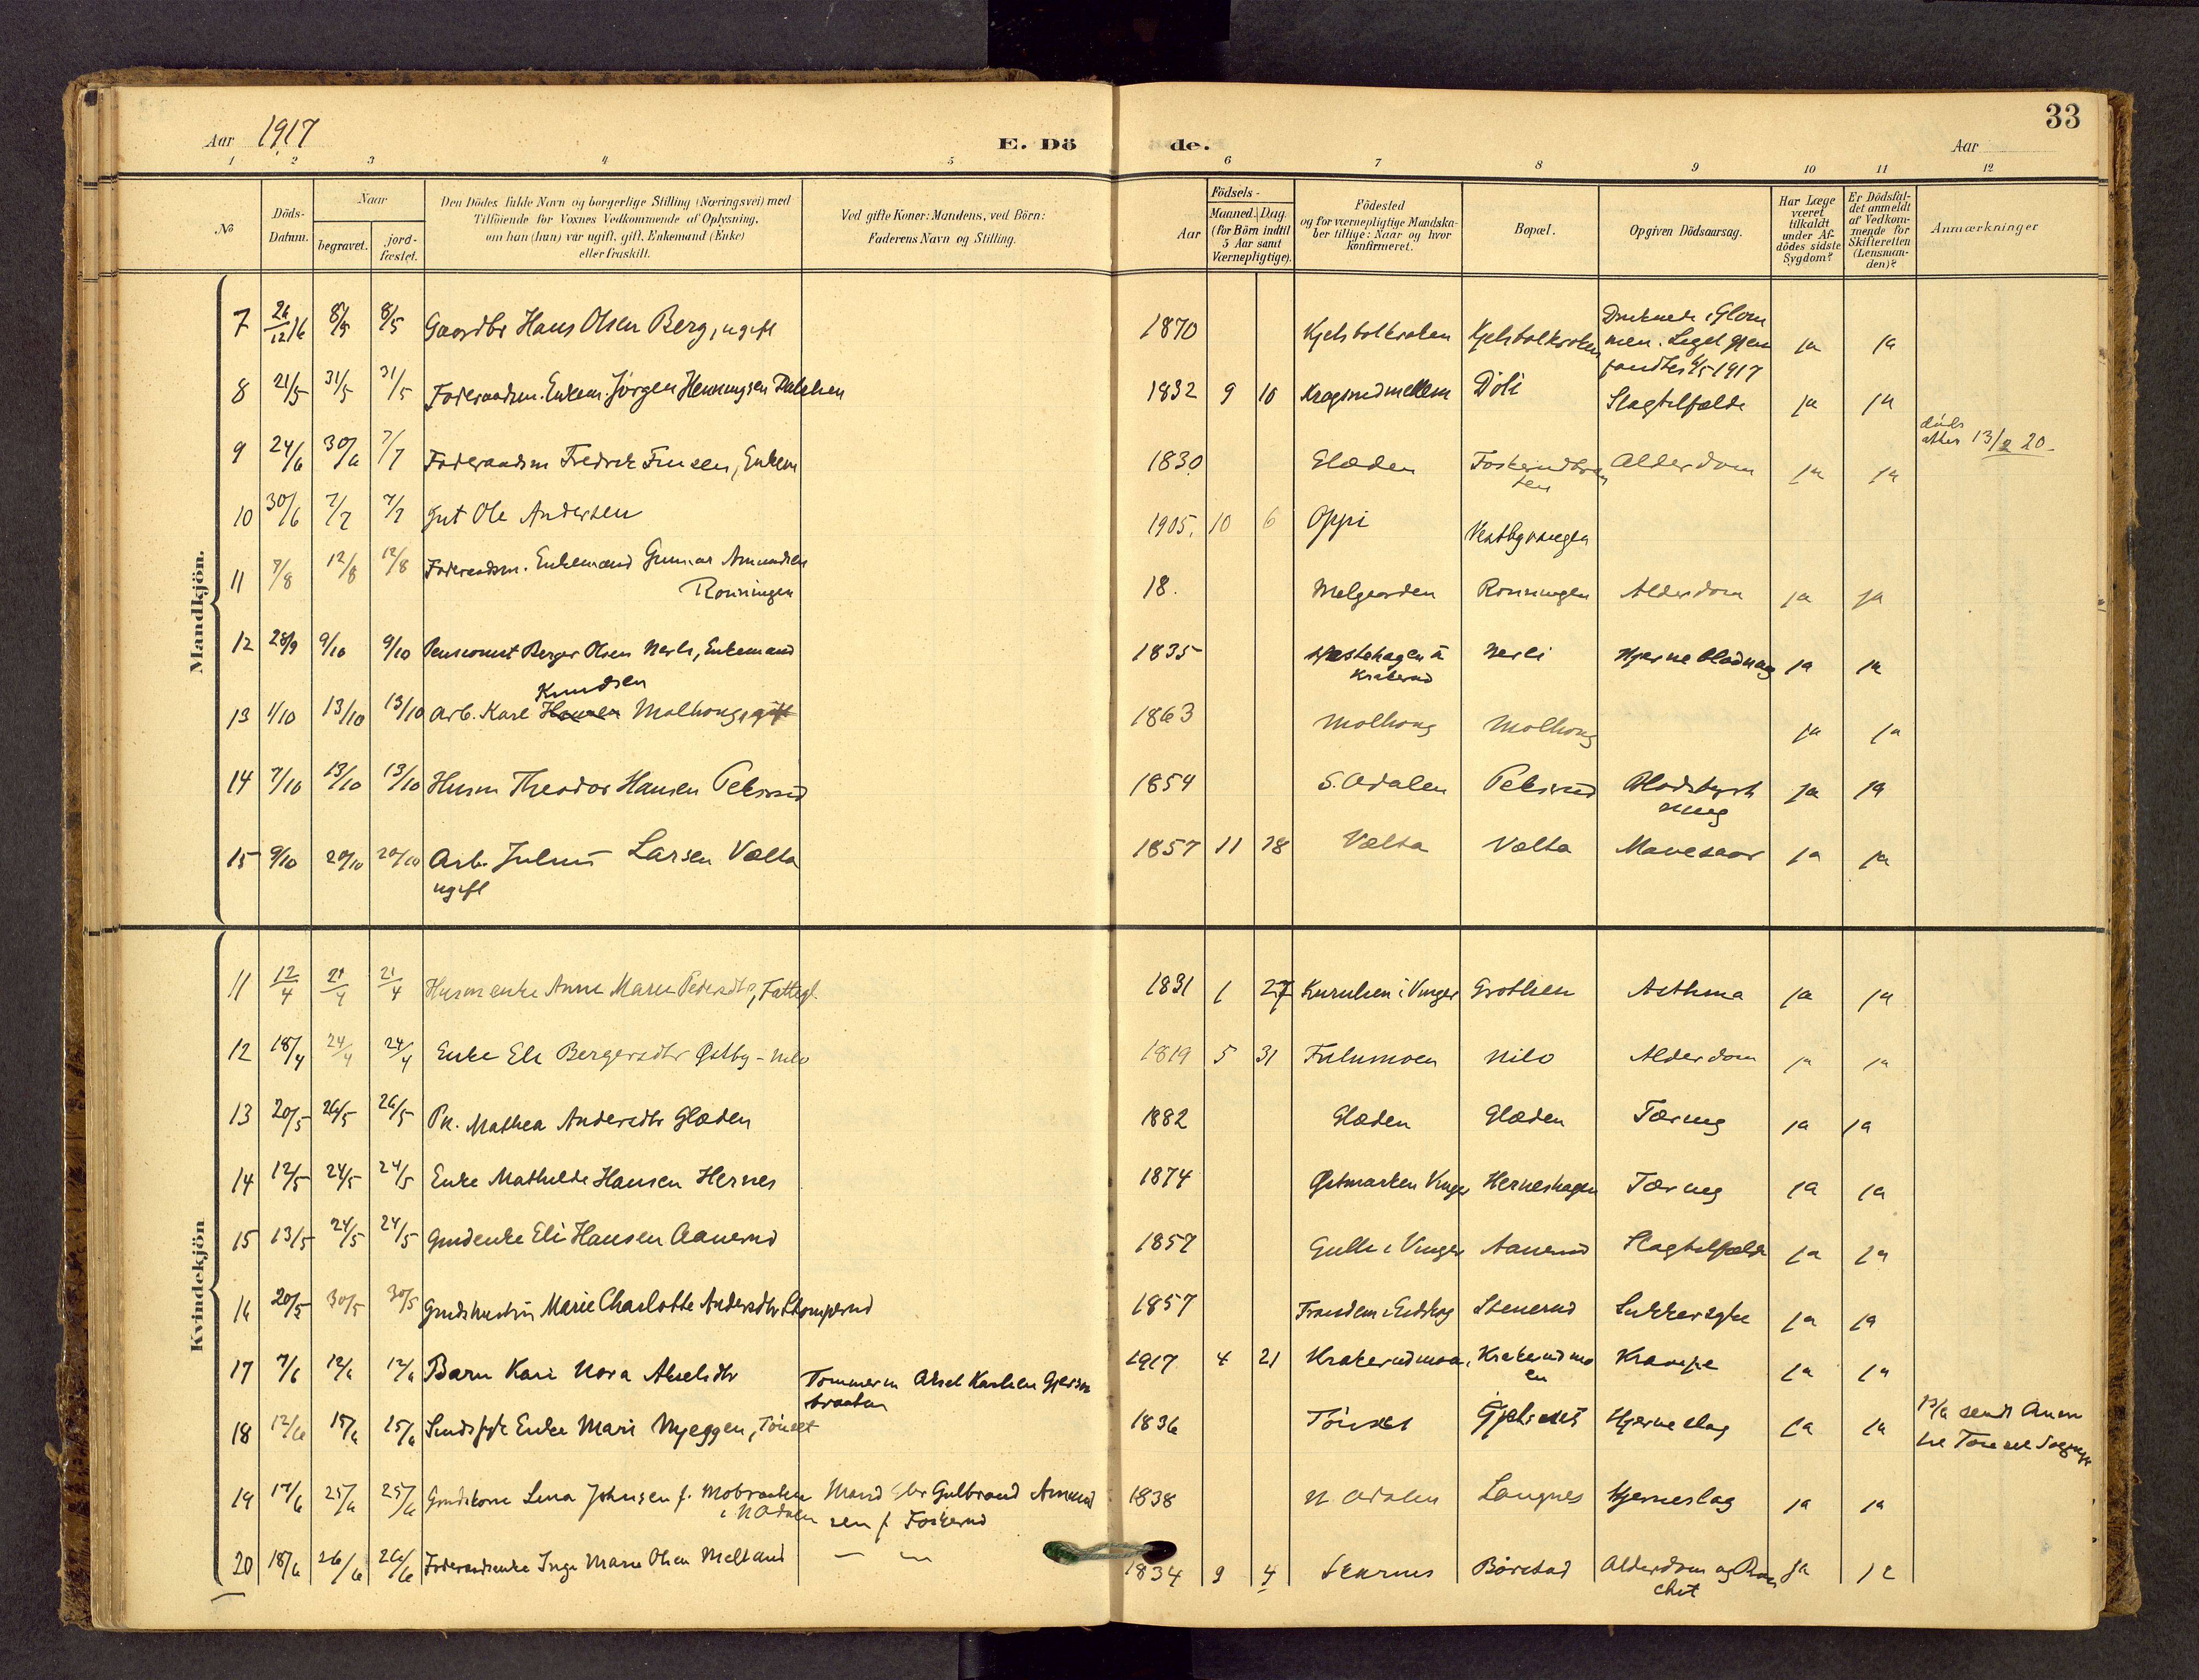 33
Aar 1917
E. Dö
de.
Aar
1 2 3 4 5 6 7 8 9 10 11 12
№
Döds-
Datum.
Naar
begravet.
jord-
fæstet.
Den Dödes fulde Navn og borgerlige Stilling (Næringsvei) med
Tilföiende for Voxnes Vedkommende af Oplysning,
om han (hun) var ugift, gift, Enkemand (Enke)
eller fraskilt.
Ved gifte Koner: Mandens, ved Börn:
Faderens Navn og Stilling.
Födsels-
Aar
Maaned. Dag.
(for Börn indtil
5 Aar samt
Værnepligtige).
Födested
og for værnepligtige Mandska-
ber tillige: Naar og hvor
konfirmeret.
Bopæl.
Opgiven Dödsaarsag.
Har Læge
været
tilkaldt
under Af-
dödes sidste
Sygdom?
Er Dödsfal-
det anmeldt
af Vedkom-
mende for
Skifteretten
(Lensman-
den)?
Anmærkninger
Mandkjön.
7 26/12 16 8/5 8/5 Gaardbr Hans Olsen Berg, ugift 1870 Druknede i Glom
men. Liget gjen
fandtes 1917 ja ja
8 21/5 31/5 31/5 Föderaadsm. Enkem. Jörgen Henningsen 1832 9 10 Döli Slagtilfælde ja ja
døds
attes 13/2 20
9 24/6 30/6 7/7 Föderaadsm Fredrik Finsen, Enkem 1830 Glæden Alderdom ja ja
10 30/6 7/7 7/7 Gut Ole Andersen 1905. 10 6 Oppi
11 7/8 12/8 12/8 Föderaadsm. Enkemand Gunnar Amundsen
Rönningen 18. Melgaarden Rönningen Alderdom ja ja
12 28/9 9/10 9/10 Pensionist Berger Olsen Nerli, Enkemand 1835 Nerli Hjerneblödning ja ja
Krakerud
Knudsen
13 1/10 13/10 13/10 Arb. Karl Hansen Molhoug, gift 1863 Molhoug Molhoug ja ja
14 7/10 13/10 13/10 Husm Theodor Hansen Pelsrud 1854 S. Odalen Pelsrud Blodstyrt
ning ja ja
15 9/10 20/10 20/10 Arb. Julius Larsen Vælta
ugift 1857 11 28 Vælta Vælta Mavesaar ja ja
Kvindekjön
11 12/4 21/4 21/4 Husmenke Anne Marie Pedersdtr, Fattigl. 1831 1 27 Asthma ja ja
12 18/4 24/4 24/4 Enke Eli Bergersdtr Østby - Nilo 1819 5 31 Fulumoen Nilo Alderdom ja ja
13 20/5 26/5 26/5 Pk. Mathea Andersdtr Glæden 1882 Glæden Glæden Tæring ja ja
14 12/5 24/5 24/5 Enke Mathilde Hansen Hernes 1874 Østmarken Vinger Herneshagen Tæring ja ja
15 13/5 24/5 24/5 Grdenke Eli Hansen Aanerud 1857 Gulli i Vinger Aanerud Slagtilfælde ja ja
16 20/5 30/5 30/5 Grdshustru Marie Charlotte Andersdtr Stomperud 1857 Stenerud Sukkersyke ja ja
17 7/6 12/6 12/6 Barn Kari Nora Akselsdtr Tömmerm Aksel Karlsen
braaten 1917 4 21 Krakerudmoen Krakerudmo
en Krampe ja ja
18 12/6 15/6 15/6 Enke Mari Nyeggen, Tönset 1836 Tönset Hjerneslag ja ja
19 17/6 25/6 25/6 Grdskone Lina Johnsen f. Mobraaten
i N Odalen Mand Gbr Gulbrand Amund
sen f. Foskerud 1838 N. Odalen Langnes Hjerneslag ja ja
20 18/6 26/6 26/6 Föderaadsenke Inge Marie Olsen Melland — — 1834 9 4 Skarnes Börstad Alderdom og Bron
chit ja ja